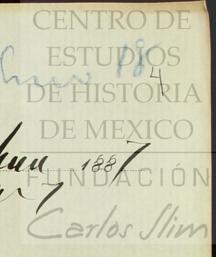 CENTRO DE
ESTUDIOS
18
4
DE HISTORIA
DE MEXICO
1887
FUNDACIÓN
Carlos Slim